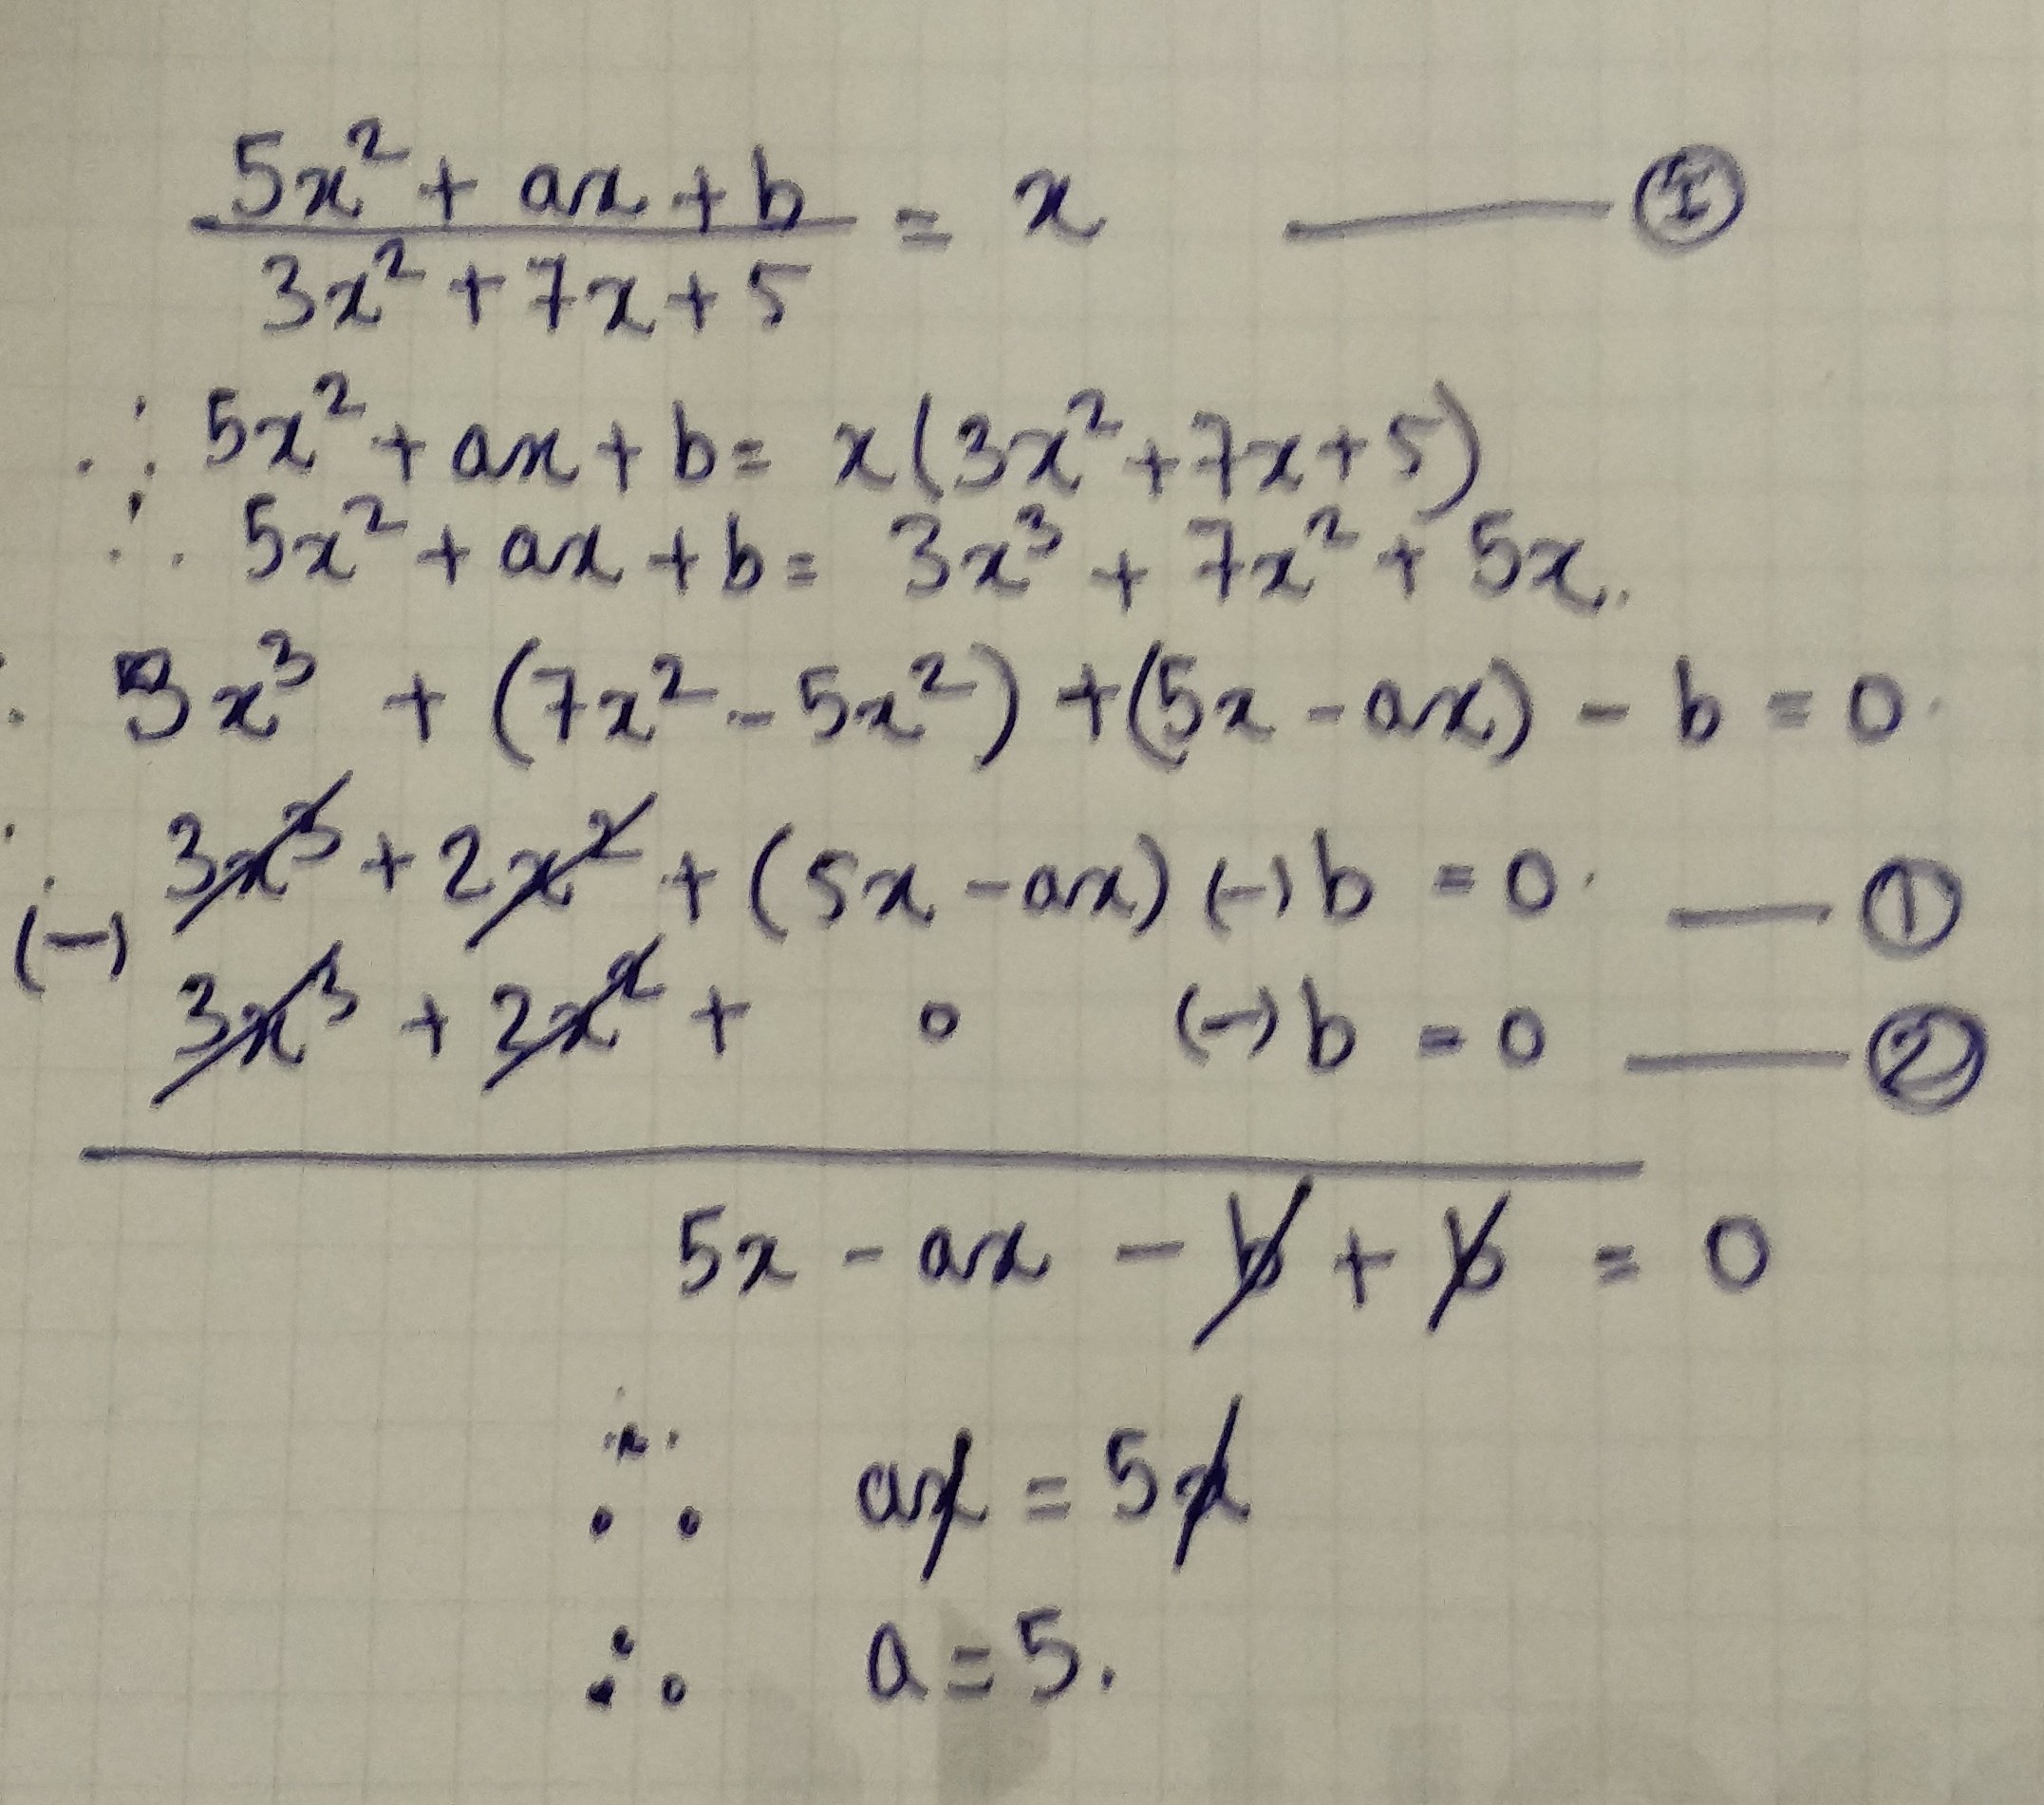 (5x² + ax + b)/(3x² + 7x + 5) = x —— Ⓘ
∴ 5x² + ax + b = x(3x² + 7x + 5)
∴ 5x² + ax + b = 3x³ + 7x² + 5x.
∴ 3x³ + (7x² - 5x²) + (5x - ax) - b = 0.
∴ 3x³ + 2x² + (5x - ax) (-) b = 0. —— ①
(-) 3x³ + 2x² + 0 (-) b = 0 —— ②
5x - ax - b + b = 0
∴ ax = 5x
∴ a = 5.